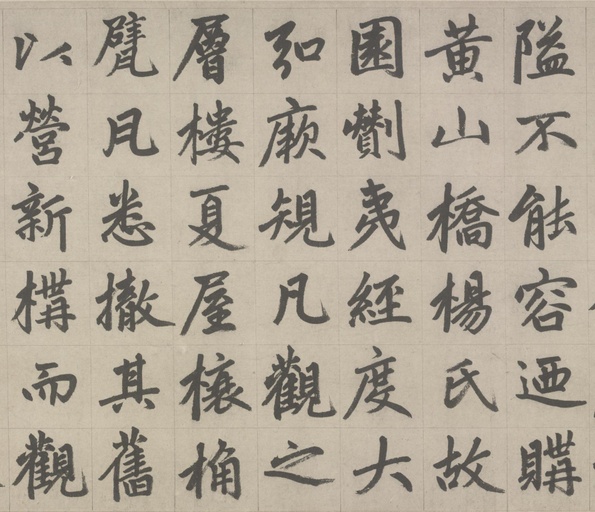 隘不能容迺購
黄山橋楊氏故
園劗夷經度大
弘厥規凡觀之
層樓夏屋榱桷
甓凡悉撤其舊
以營新構而觀